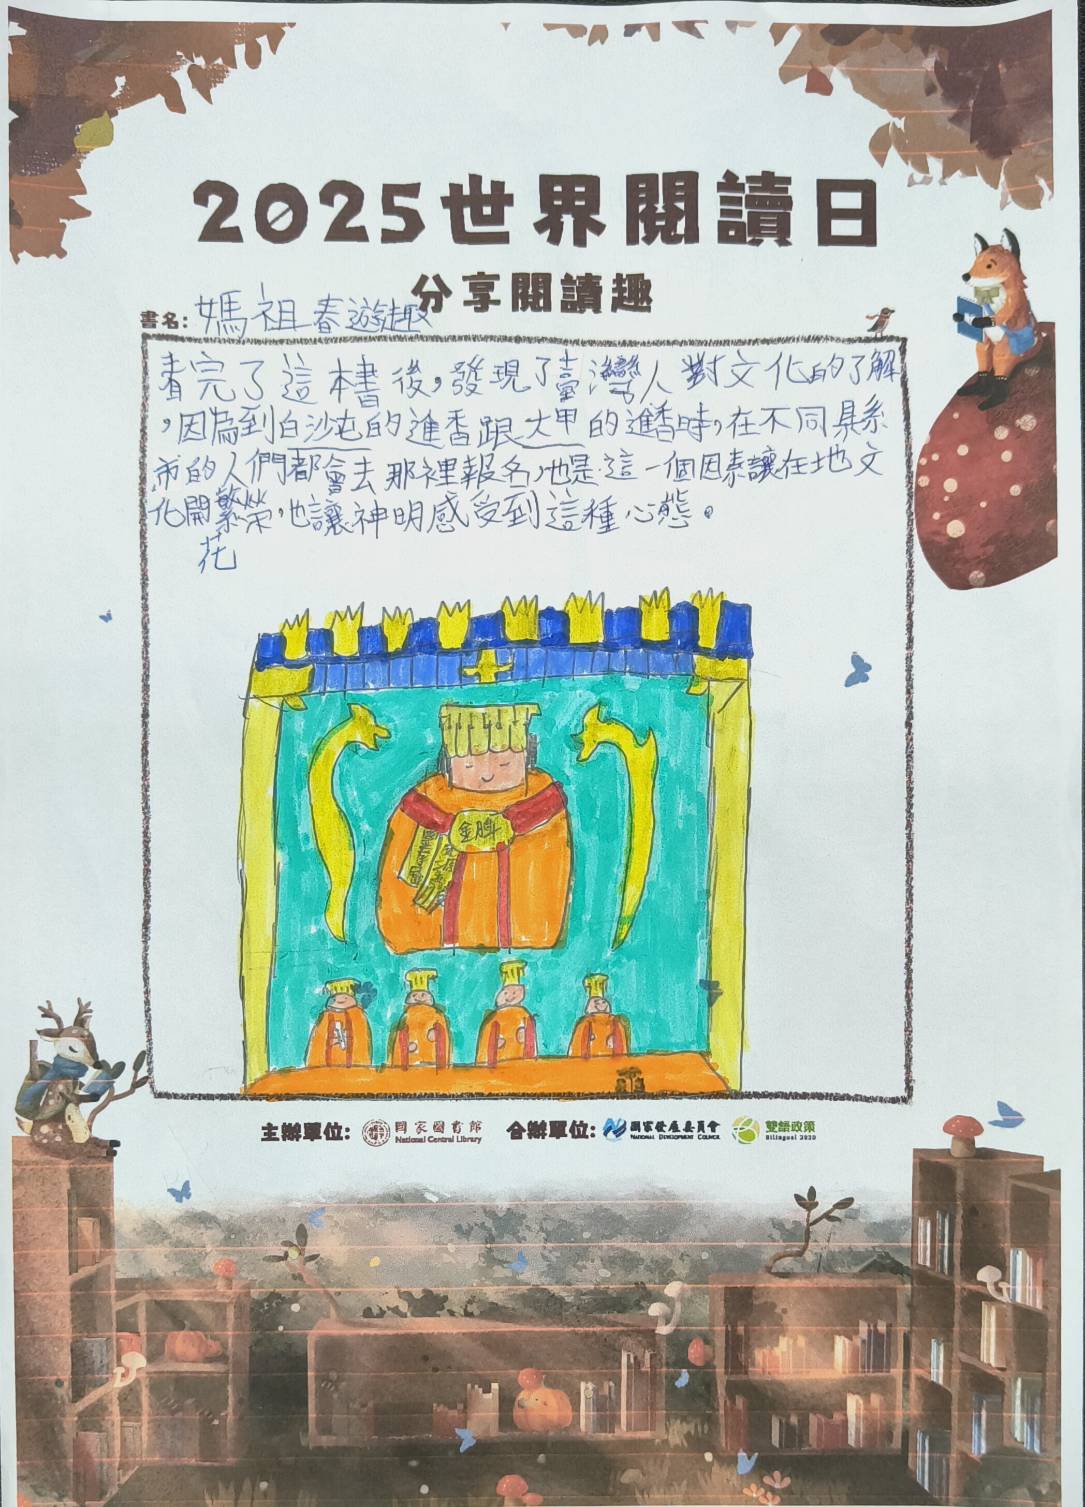 2025世界閱讀日
分享閱讀趣
書名: 媽祖春遊趣
看完了這本書後,發現了臺灣人對文化的了解
,因為到白沙屯的進香跟大甲的進香時,在不同縣
市的人們都會去那裡報名,也是這一個因素讓在地文
化開繁榮,也讓神明感受到這種心態。
花
金牌
主辦單位: 國家圖書館 National Central Library 合辦單位: 國家發展委員會 NATIONAL DEVELOPMENT COUNCIL 雙語政策 Bilingual 2030